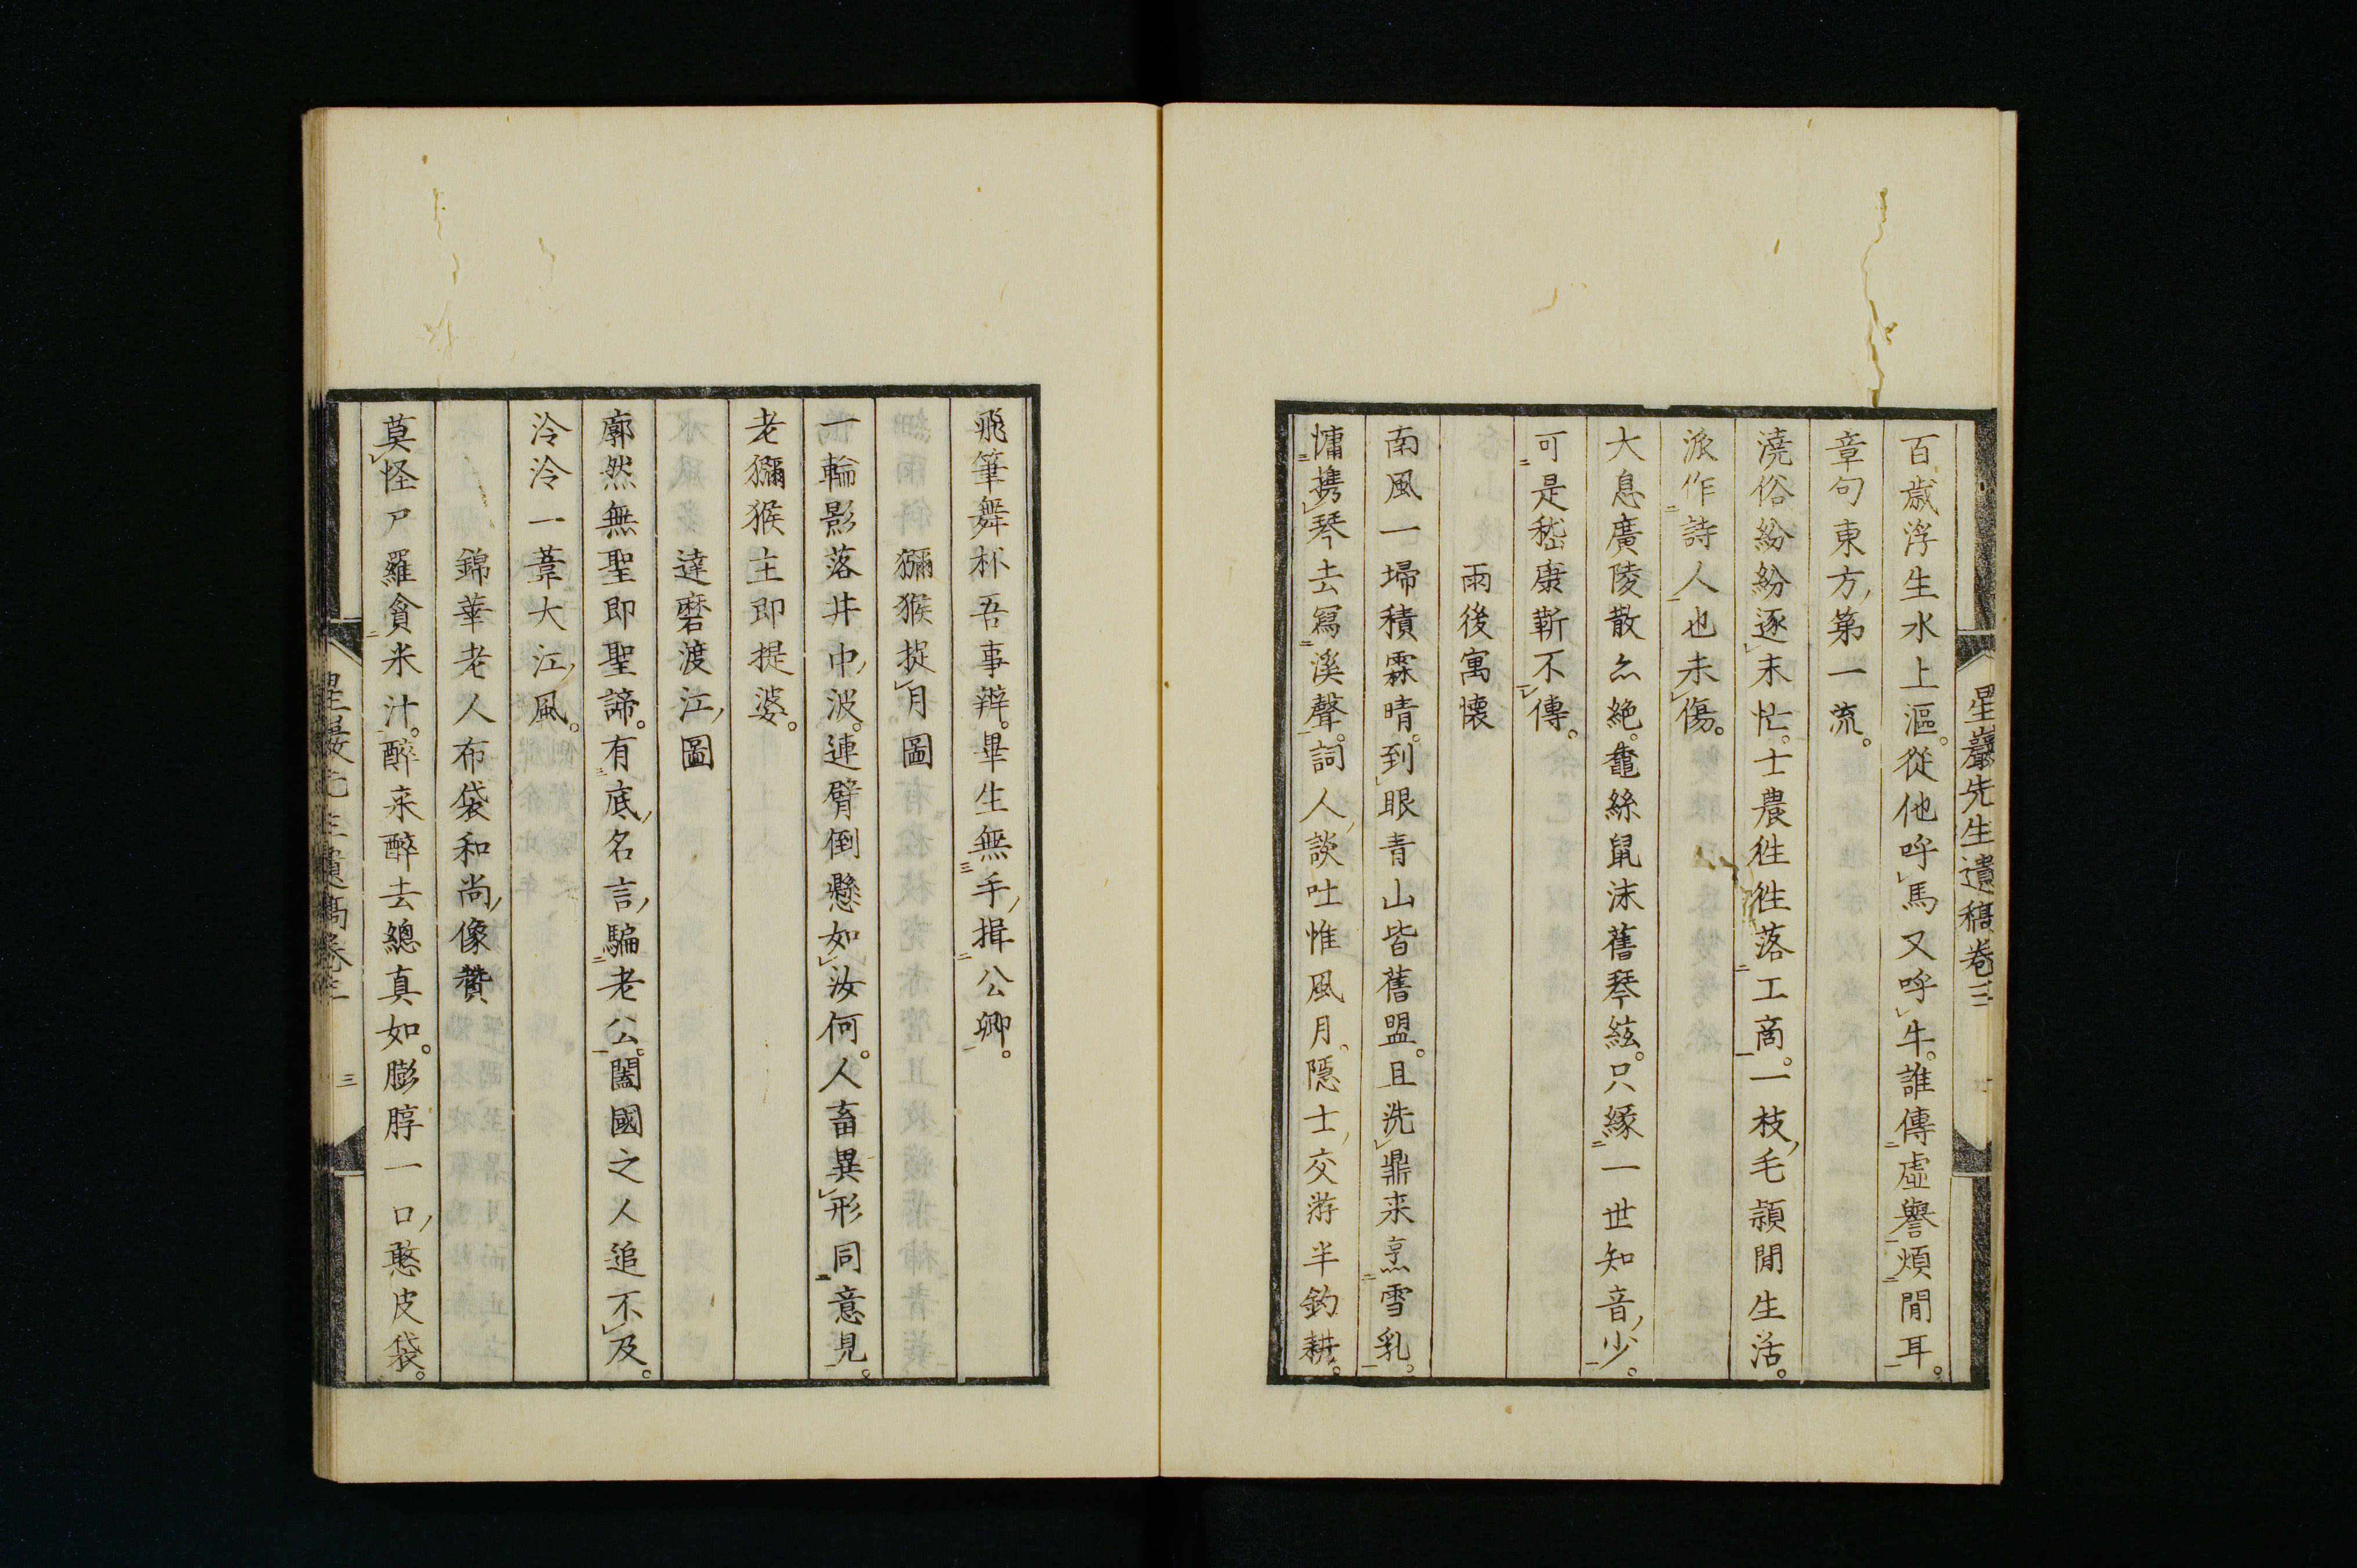 星巖先生遺稿卷三
百歳浮生水上漚。從他呼馬又呼牛。誰傳虛譽煩閒耳。
章句東方第一流。
澆俗紛紛逐末忙。士農徃徃落工商。一枝毛頴閒生活。
派作詩人也未傷。
大息廣陵散么絶。龕絲鼠沫舊琴絃。只緣一世知音少。
可是嵇康靳不傳。
雨後寓懷
南風一埽積霖晴。到眼青山皆舊盟。且洗鼎来烹雪乳。
慵携琴去寫溪聲。詞人談吐惟風月。隱士交游半釣耕。
飛筆舞杯吾事辦。畢生無手揖公卿。
獼猴捉月圖
一輪影落井中波。連臂倒懸如汝何。人畜異形同意見。
老獼猴主即提婆。
達磨渡江圖
廓然無聖即聖諦。有底名言騙老公。闔國之人追不及。
泠泠一葦大江風。
錦華老人布袋和尚像贊
莫怪尸羅貪米汁。醉来醉去總真如。膨脝一口憨皮袋。
三